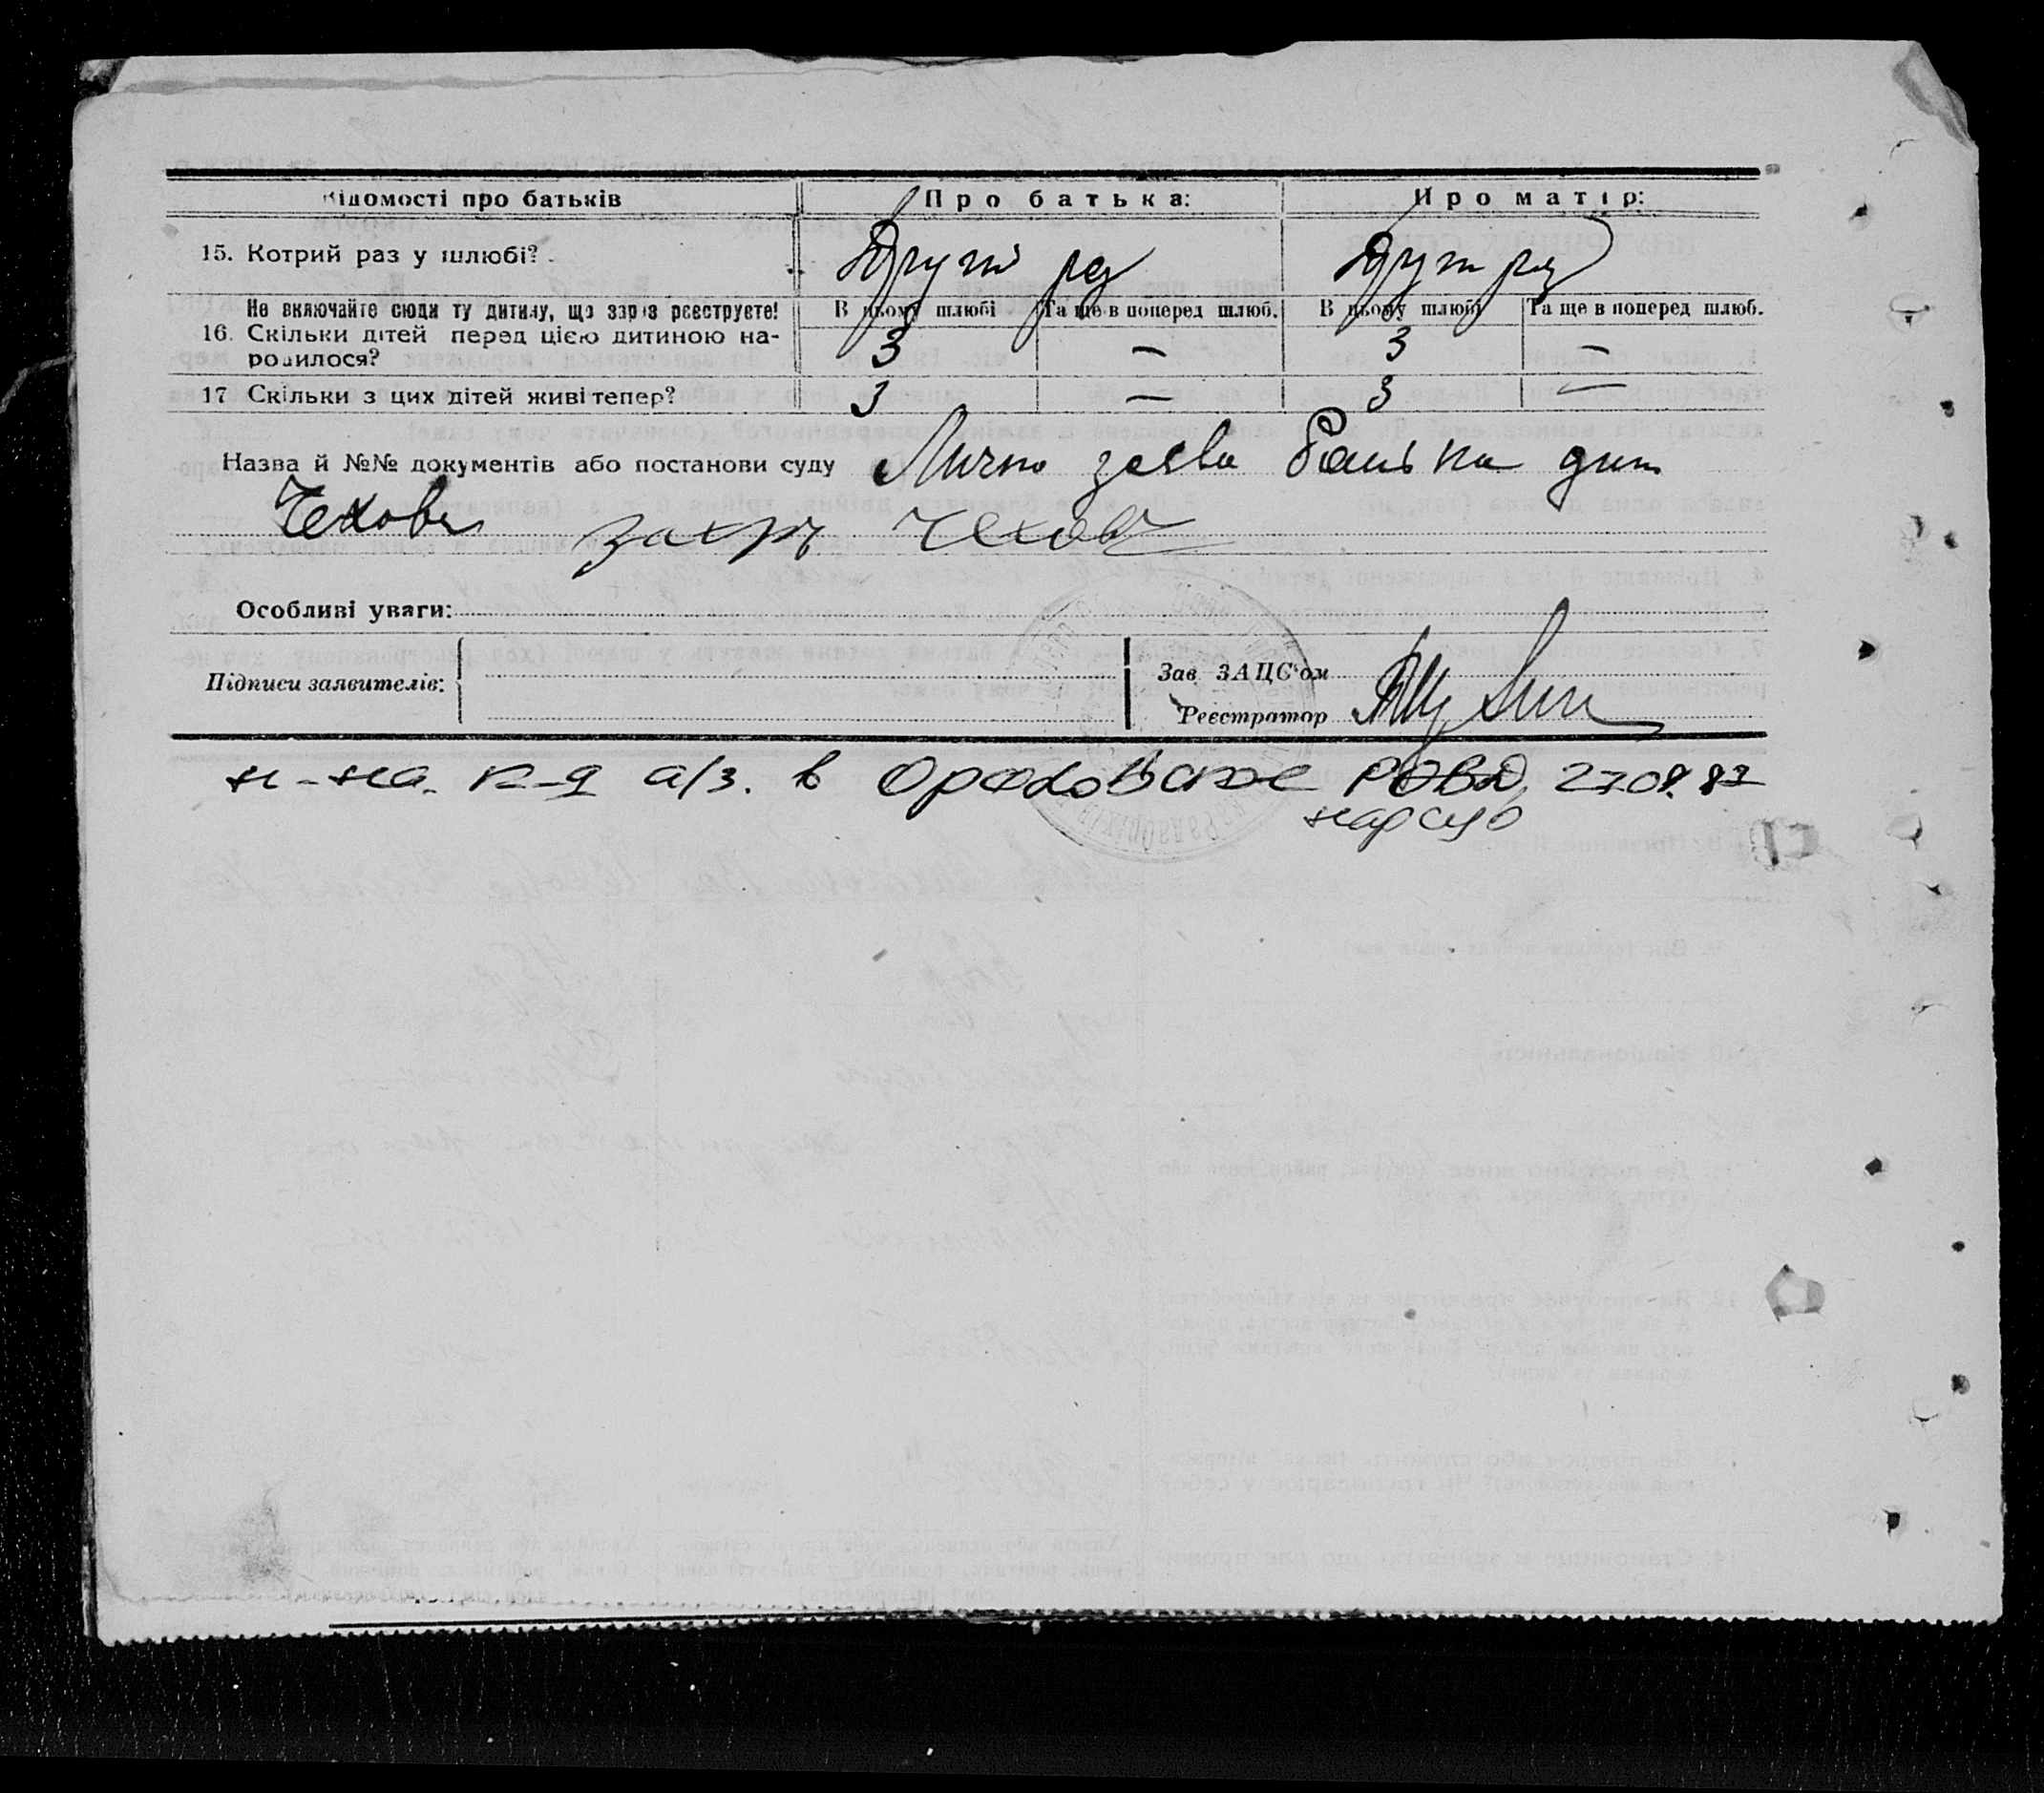 Відомості про батьків Про батька: Про матір:
15. Котрий раз у шлюбі? Другий раз Другий раз
Не включайте сюди ту дитину, що зараз реєструєте! В цьому шлюбі Та ще в поперед шлюб. В цьому шлюбі Та ще в поперед шлюб.
16. Скільки дітей перед цією дитиною на-
родилося? 3 — 3 —
17 Скільки з цих дітей живі тепер? 3 — 3 —
Назва й №№ документів або постанови суду Лично заява батька
Чехова Чехов
Особливі уваги:
Підписи заявителів:
Зав. ЗАЦС'ом
Реєстратор
к-д а/з. в Ореховское РОВД 27.08.87
нарсуд